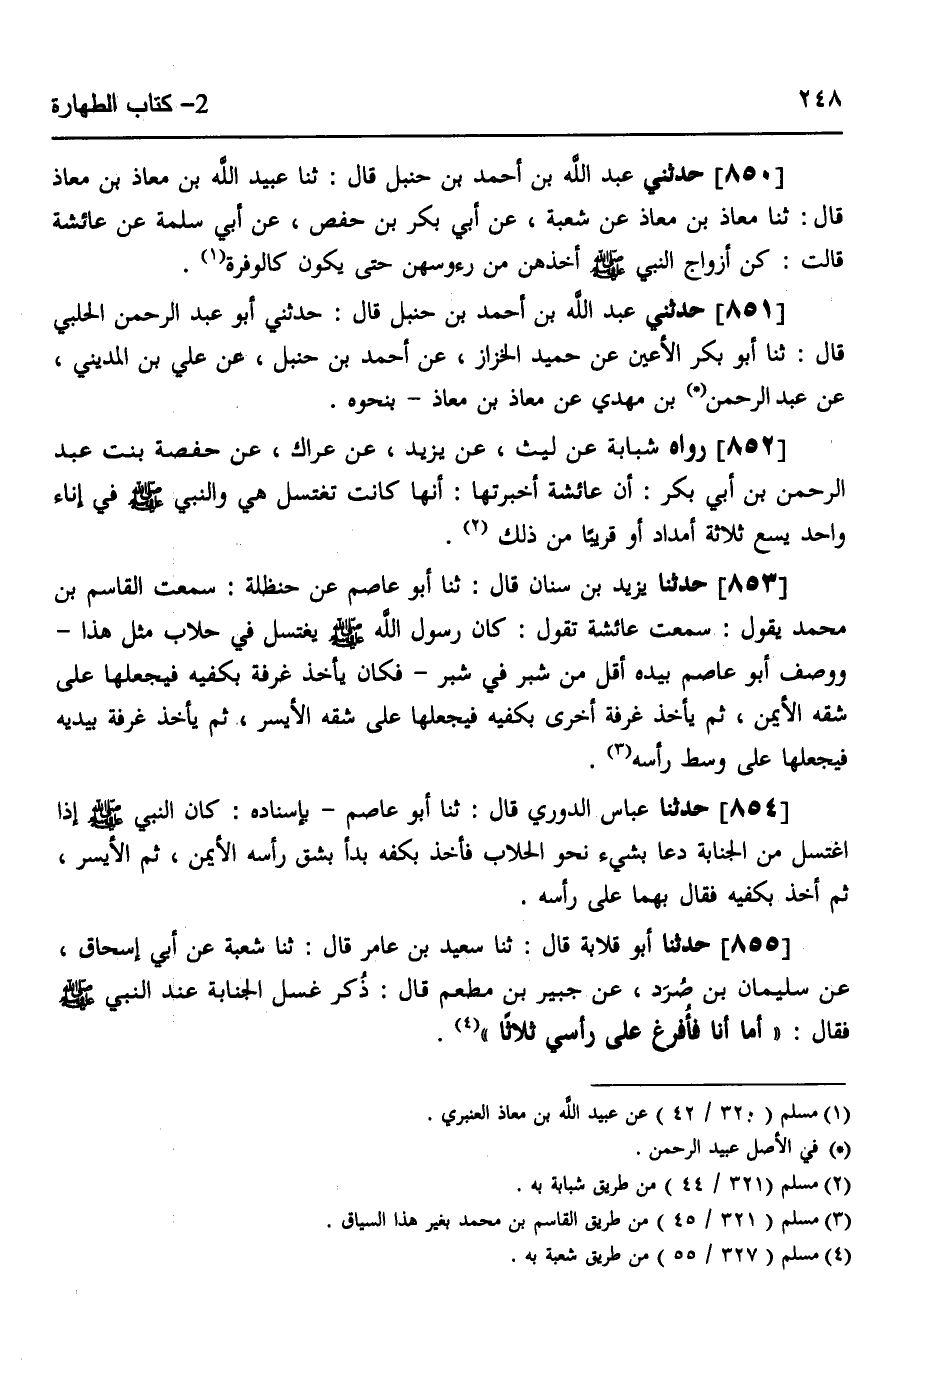 ٢٤٨ 2- كتاب الطهارة
[٨٥٠] حدثني عبد اللَّه بن أحمد بن حنبل قال : ثنا عبيد اللَّه بن معاذ بن معاذ
قال : ثنا معاذ بن معاذ عن شعبة ، عن أبي بكر بن حفص ، عن أبي سلمة عن عائشة
قالت : كن أزواج النبي ﷺ أخذهن من رءوسهن حتى يكون كالوفرة(١) .
[٨٥١] حدثني عبد اللَّه بن أحمد بن حنبل قال : حدثني أبو عبد الرحمن الحلبي
قال : ثنا أبو بكر الأعين عن حميد الخزاز ، عن أحمد بن حنبل ، عن علي بن المديني ،
عن عبد الرحمن(*) بن مهدي عن معاذ بن معاذ – بنحوه .
[٨٥٢] رواه شبابة عن ليث ، عن يزيد ، عن عراك ، عن حفصة بنت عبد
الرحمن بن أبي بكر : أن عائشة أخبرتها : أنها كانت تغتسل هي والنبي ﷺ في إناء
واحد يسع ثلاثة أمداد أو قريبًا من ذلك (٢) .
[٨٥٣] حدثنا يزيد بن سنان قال : ثنا أبو عاصم عن حنظلة : سمعت القاسم بن
محمد يقول : سمعت عائشة تقول : كان رسول اللَّه ﷺ يغتسل في حلاب مثل هذا –
ووصف أبو عاصم بيده أقل من شبر في شبر – فكان يأخذ غرفة بكفيه فيجعلها على
شقه الأيمن ، ثم يأخذ غرفة أخرى بكفيه فيجعلها على شقه الأيسر ، ثم يأخذ غرفة بيديه
فيجعلها على وسط رأسه(٣) .
[٨٥٤] حدثنا عباس الدوري قال : ثنا أبو عاصم – بإسناده : كان النبي ﷺ إذا
اغتسل من الجنابة دعا بشيء نحو الحلاب فأخذ بكفه بدأ بشق رأسه الأيمن ، ثم الأيسر ،
ثم أخذ بكفيه فقال بهما على رأسه .
[٨٥٥] حدثنا أبو قلابة قال : ثنا سعيد بن عامر قال : ثنا شعبة عن أبي إسحاق ،
عن سليمان بن صُرَد ، عن جبير بن مطعم قال : ذُكر غسل الجنابة عند النبي ﷺ
فقال : « أما أنا فأُفرغ على رأسي ثلاثًا »(٤) .
(١) مسلم ( ٣٢٠ / ٤٢ ) عن عبيد اللَّه بن معاذ العنبري .
(*) في الأصل عبيد الرحمن .
(٢) مسلم (٣٢١ / ٤٤ ) من طريق شبابة به .
(٣) مسلم ( ٣٢١ / ٤٥ ) من طريق القاسم بن محمد بغير هذا السياق .
(٤) مسلم ( ٣٢٧ / ٥٥ ) من طريق شعبة به .